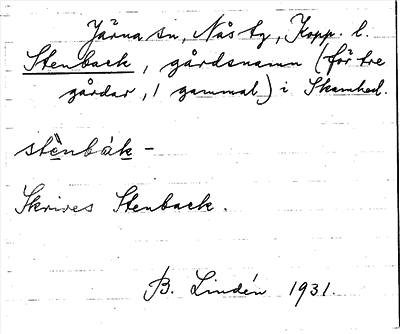 Järna sn, Nås tg, Kopp. l.
Stenback, gårdsnamn (för tre
gårdar, 1 gammal) i Skamhed.
stè̀nbàk –
Skrives Stenback.
B. Lindén 1931.